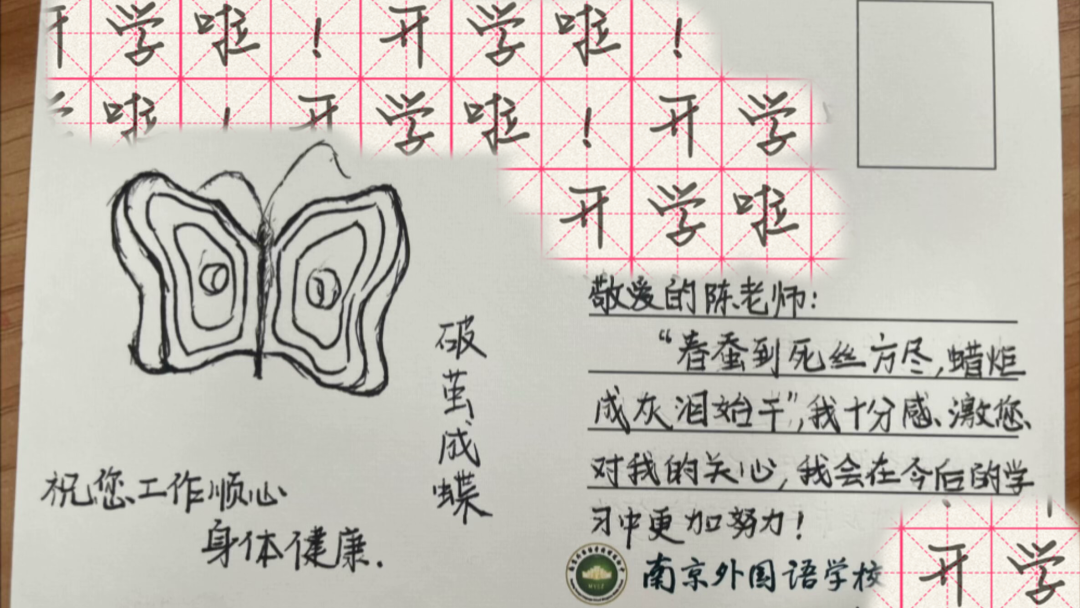 开学啦！开学啦！
学啦！开学啦！开学
开学啦
敬爱的陈老师：
“春蚕到死丝方尽，蜡炬
成灰泪始干”，我十分感激您
对我的关心，我会在今后的学
习中更加努力！
破茧成蝶
祝您工作顺心
身体健康.
南京外国语学校
开学